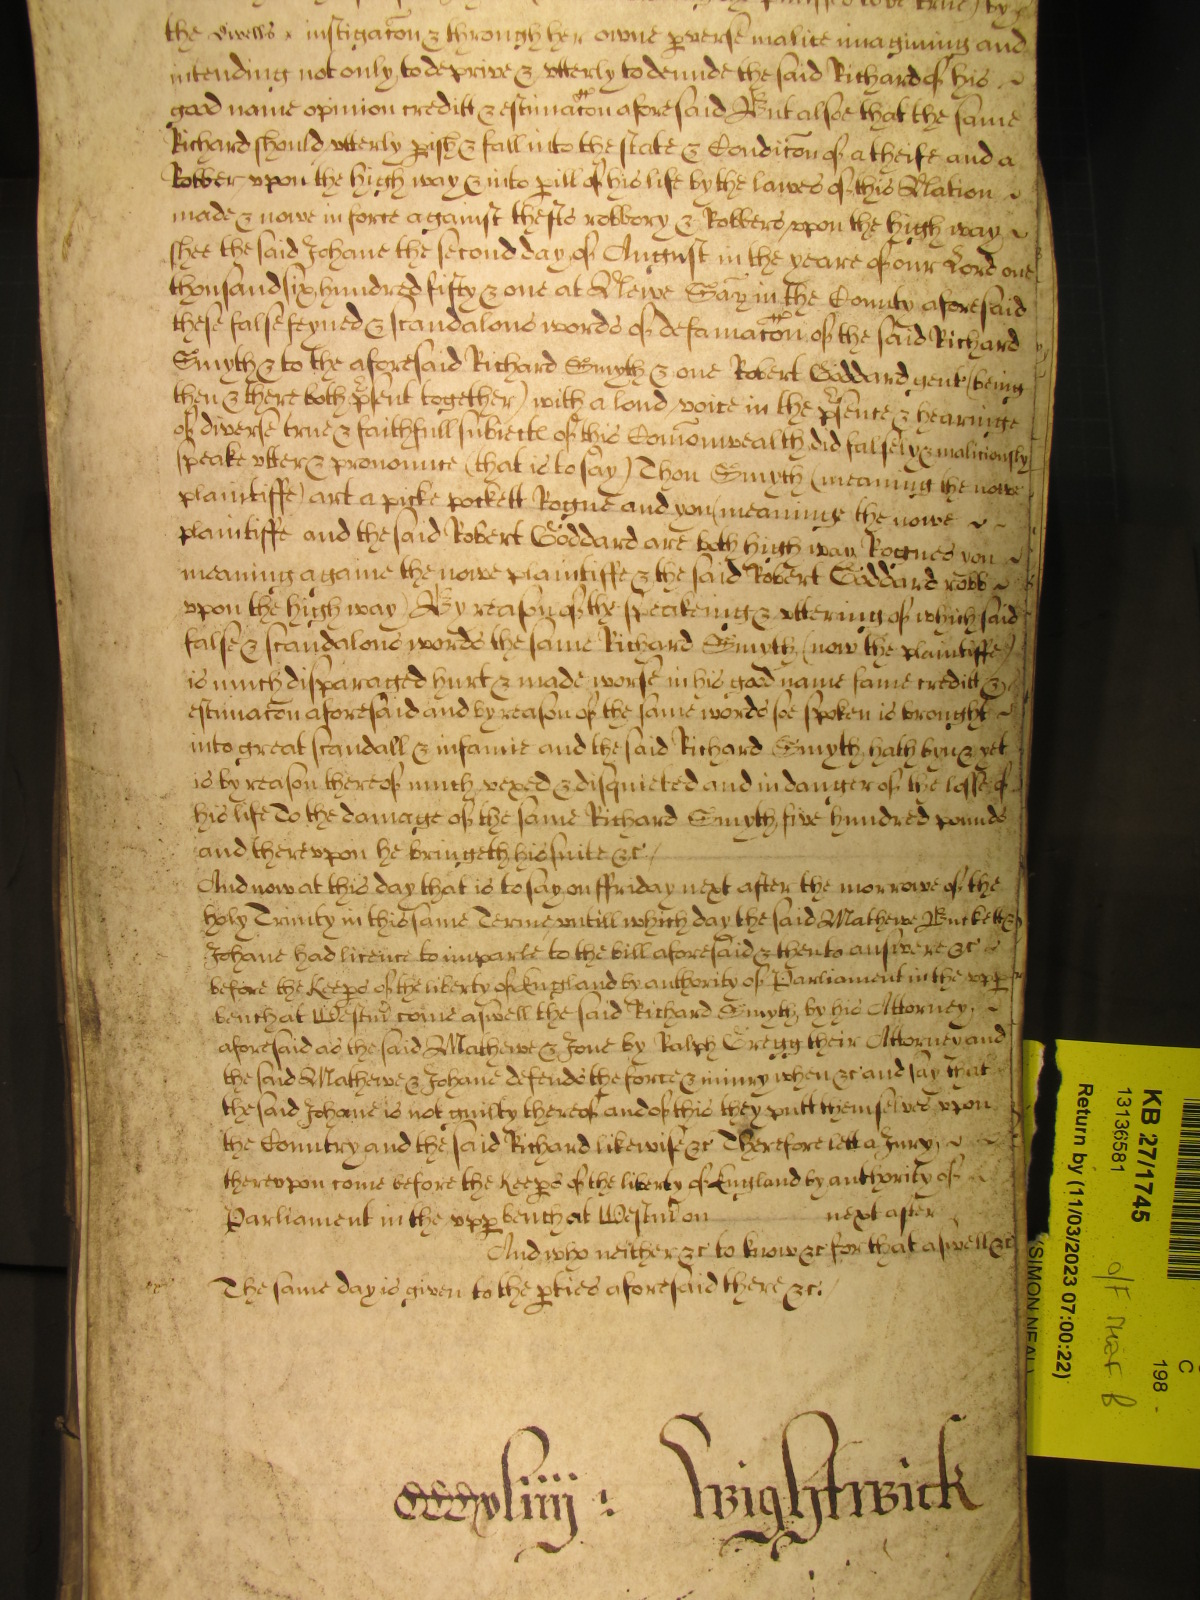 the divells instigacõn & through her owne pverse malice imagining and
intending not only to deprive & utterly to denude the said Richard of his
good name opinion creditt & estimacõn aforesaid But alsoe that the same
Richard should utterly pish & fall into the state & Condicõn of a theife and a
Robber upon the high way & into pill of his life by the lawes of this Nation
made & nowe in force against thefts robbory & Robbers upon the high way
shee the said Johane the second day of August in the yeare of our Lord one
thousand six hundred fifty & one at Newe Sarũ in the County aforesaid
these false feyned & scandalous words of defamacõn of the said Richard
Smyth & to the aforesaid Richard Smyth & one Robert Goddard gent (being
then & there both psent together) with a loud voice in the psence & hearinge
of diverse true & faithfull subiects of this Comonwealth did falsely & malitiously
speake utter & pronounce (that is to say) Thou Smyth (meaning the nowe
plaintiffe) art a picke pockett Rogue and you (meaning the nowe
plaintiffe and the said Robert Goddard are both high way Rogues you
meaning againe the nowe plaintiffe & the said Robert Goddard robb
upon the high way) By reason of the speakeing & uttering of which said
false & scandalous words the same Richard Smyth (now the plaintiffe)
is much disparaged hurt & made worse in his good name fame creditt &
estimacõn aforesaid and by reason of the same words soe spoken is brought
into great scandall & infamie and the said Richard Smyth hath byn & yet
is by reason thereof much vexed & disquieted and in danger of the losse of
his life To the damage of the same Richard Smyth five hundred pounds
and thereupon he bringeth his suite &c
And now at this day that is to say on ffriday next after the morrowe of the
holy Trinity in this same Terme untill which day the said Mathewe Buckett &
Johane had licence to imparle to the bill aforesaid & then to answere &c
before the Keeps of the liberty of England by authority of Parliament in the upp
bench at Westm̃ come aswell the said Richard Smyth by his Attorney
aforesaid as the said Mathewe & Jone by Ralph Gregg their Attorney and
the said Mathewe & Johane defends the force & iniury when &c and say that
the said Johane is not guilty thereof and of this they putt themselves upon
the Country and the said Richard likewise &c Therefore lett a Jury
thereupon come before the Keeps of the liberty of England by authority of
Parliament in the upp bench at Westm̃ on next after
And who neither &c to know &c for that aswell &c
The same day is given to the pties aforesaid there &c.
cccxliiij : Wightwick
KB 27/1745
13136581
Return by (11/03/2023 07:00:22)
(SIMON NEAL)
C
198